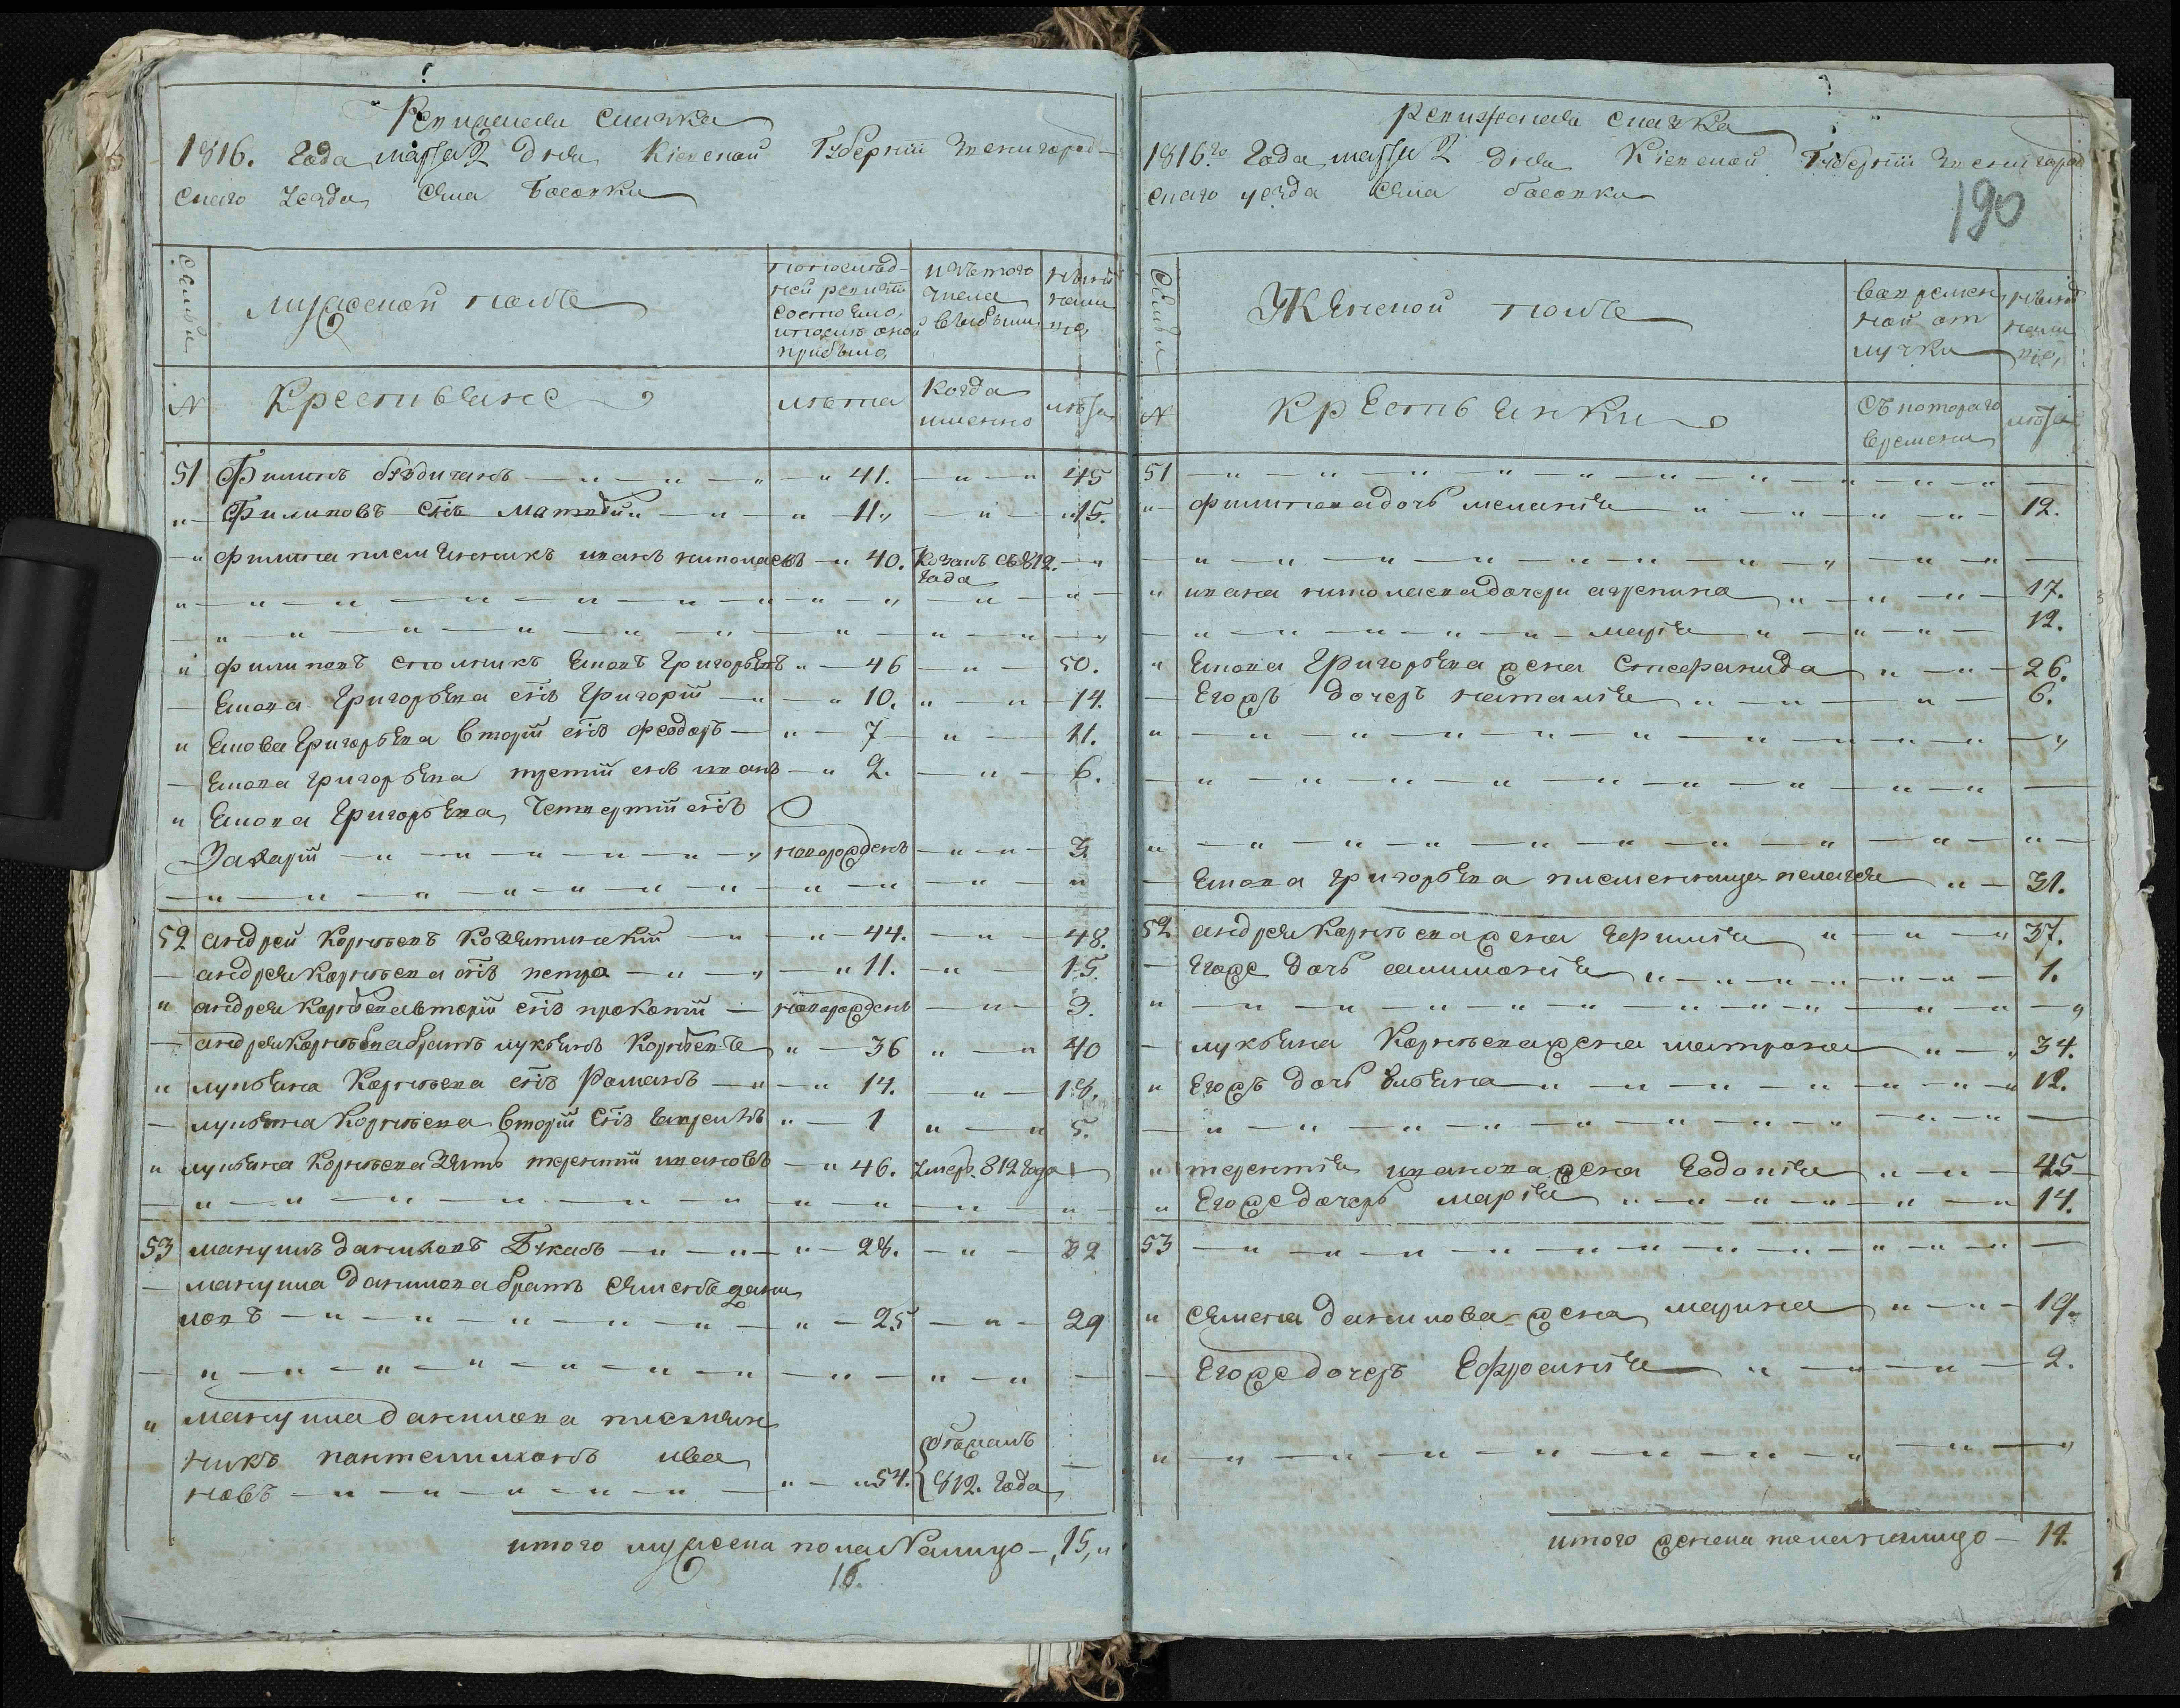 Ревизская сказка
1816. Года марта 2 дня Киевской Губернии Звенигород-
скаго уезда села Босовки
Семьи
Мужеской полъ
по последней ревизіи состояло, и после оной прибыло,
изъ того числа выбыло,
ныне на лицо,
N
Крестьяне
лета
Когда именно
лета
51 Филипъ — 41. — 45
Филиповъ сынъ Матвій — 11 — 15.
Филипа племенникъ иванъ — 40. с 812. года
Филиповъ Емовъ Григорьевъ — 46 — 50.
Григорьева сынъ Григорій — 10. — 14.
Григорьева вторій сынъ феодоръ — 7 — 11.
Григорьева третій синъ иванъ — 2. — 6.
Григорьева, Четвертій синъ
Захарій — новорожденъ — 3.
52 андрей Корнѣевъ — 44. — 48.
андрея Корнѣева синъ петро — 11. — 15.
андрея Корнѣева вторій синъ прокопій — новорожденъ — 3.
андрея Корнѣева братъ лукьянъ Корнѣевъ — 36 — 40
лукьяна Корнѣева синъ Романъ — 14. — 18.
лукьяна Корнѣева вторій синъ — 1 — 5.
лукьяна Корнѣева зять терентій ивановъ — 46. умеръ. 812 года
53 мануилъ даниловъ — 28. — 32
мануила данилова братъ семенъ дани
ловъ — 25 — 29
мануила данилова племян
никъ пантелимонъ ива
новъ — 54. 812. года
итого мужеска пола Налицо — 15,
16.
Ревизская сказка
1816го Года марта 2 дня Киевской Губерніи Звенигород
скаго уезда села босовки
190
Семьи
Женской полъ
во временной отлучке
ныне на лицо,
N
Крестьянки
Съ котораго времени
лета
51
филипова дочь меланія — 12.
ивана дочери агрепина — 17.
марія — 12.
Григорьева жена Стефанида — 26.
Егожъ дочерь наталія — 6.
Григорьева племенница пелагея — 31.
52 андрея Корнѣева жена — 37.
Егоже дочь — 1.
лукьяна Корнѣева жена матрона — 34.
Егожъ дочь — 12.
терентія иванова жена Евдокія — 45
Егоже дочерь марія — 14.
53
семена данилова жена марина — 19.
Егоже дочерь Ефросинія — 2.
итого женска пола налицо — 14.